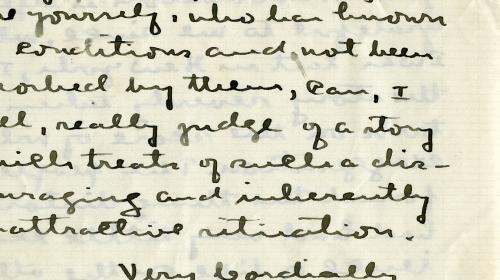 yourself, who has known
conditions and not been
by them, can, I
really judge of a story
treats of such a dis-
uraging and inherently
attractive situation.
Very Cordially